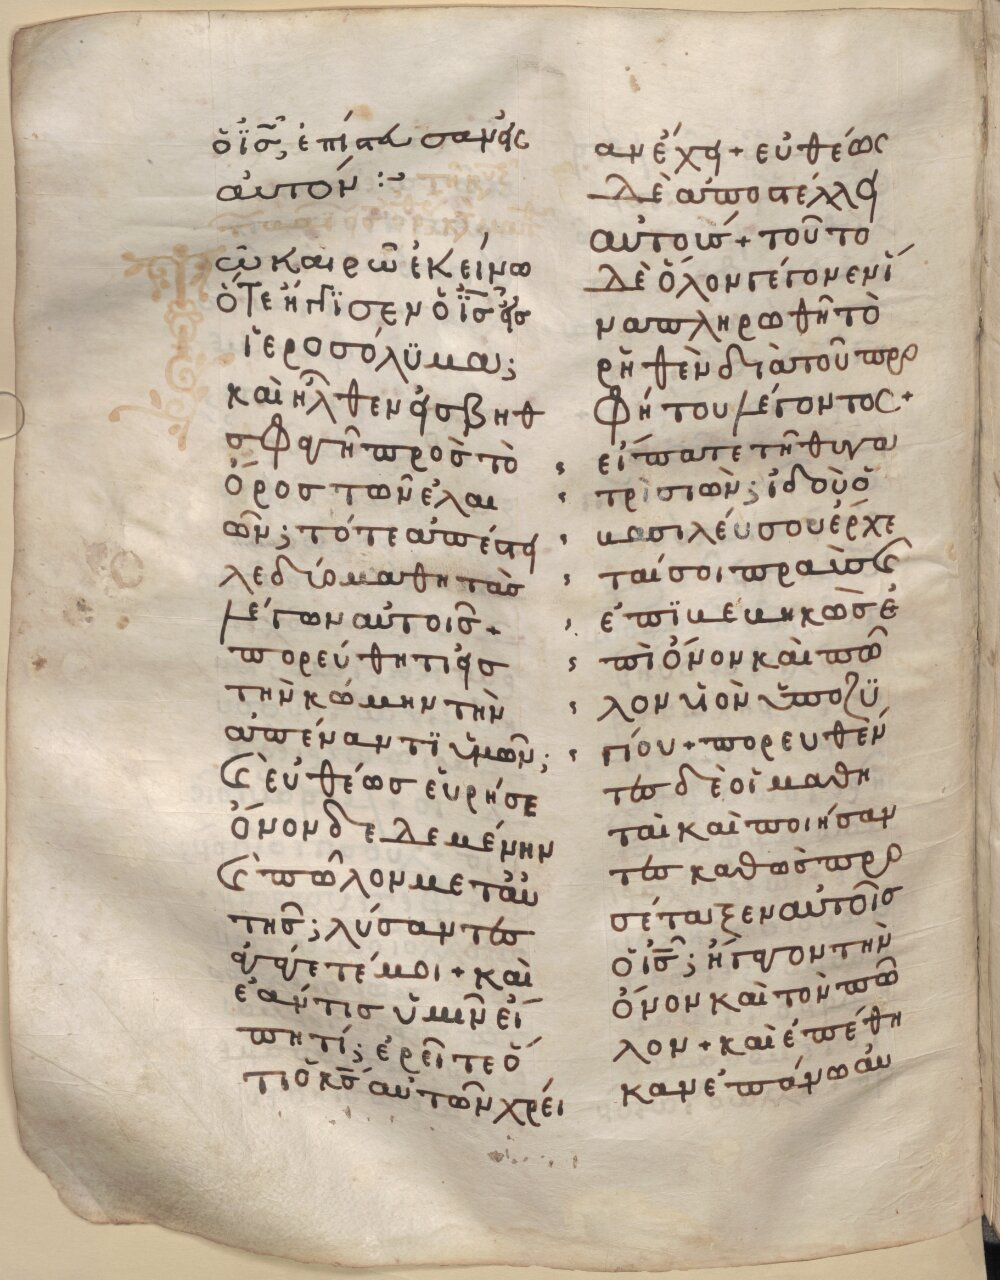 ὁ ι̅σ̅, ἐπιπᾶσαν εἰσ
αὐτόν :~
ῶ καιρῶ ἐκείνω
ὅτε ἤγγϊσεν ὁ ι̅σ̅ εἰσ
ἱεροσόλϋμα;
καὶ ἦλθεν εἰσ βηθ
σφαγῆ πρὸσ τὸ
ὄροσ τῶν ἐλαι
ῶν; τότε ἀπέστει
λε δύο μαθητὰσ
λέγων αὐτοῖσ +
πορεύθητι εἰσ
τὴν κώμην τὴν
ἀπέναντϊ ὑμῶν;
ϗ εὐθέωσ εὑρήσε
ὄνον δεδεμένην
ϗ πῶλον μετ' αὐ
τῆσ; λύσαντεσ
ἀγάγετέ μοι + καὶ
ἐάν τισ ὑμῖν εἴ
πη τί; ἐρεῖτε ὅ
τι ὁ κ̅σ̅ αὐτῶν χρεί
αν ἔχει + εὐθέωσ
δὲ ἀποστέλλει
αὐτούσ + τοῦτο
δὲ ὅλον γέγονεν ἵ
να πληρωθῆ τὸ
ρηθὲν διὰ τοῦ προ
φήτου λέγοντοσ +
εἴπατε τῆ θυγα
τρὶ σιών; ἰδοὺ ὁ
βασιλεύσ σου ἔρχε
ταί σοι πραῢσ ϗ
ἐπϊβεβηκὼσ ἐ
πὶ ὄνον καὶ πῶ
λον υἱὸν ὑποζϋ
γίου + πορευθέν
τεσ δὲ οἱ μαθη
ταὶ καὶ ποιήσαν
τεσ καθὼσ προ
σέταξεν αὐτοῖσ
ὁ ι̅σ̅; ἤγαγον τὴν
ὄνον καὶ τὸν πῶ
λον + καὶ ἐπέθη
καν ἐπάνω αὐ